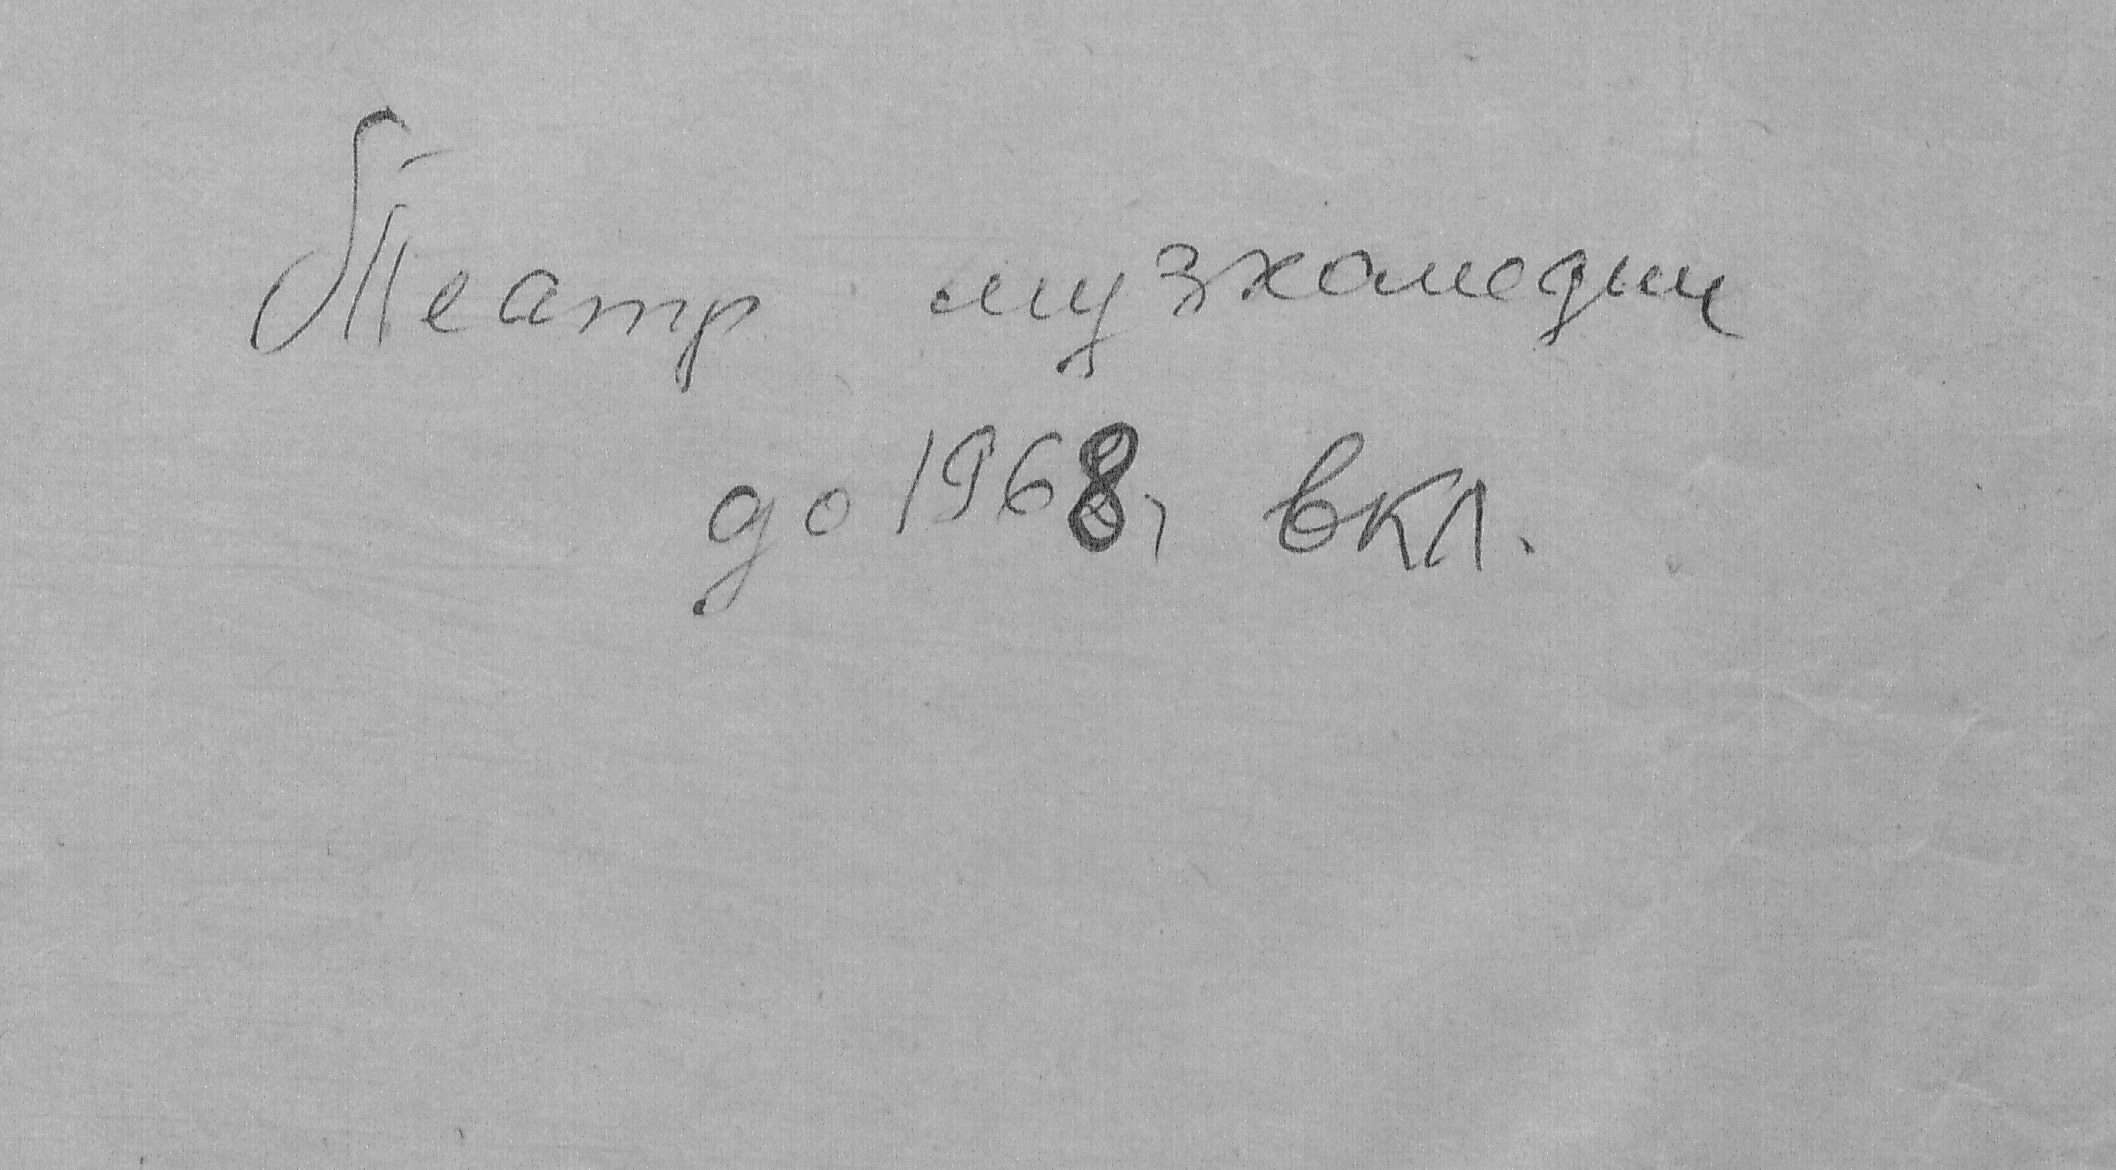 Театр музкомедии
до 1968г вкл.